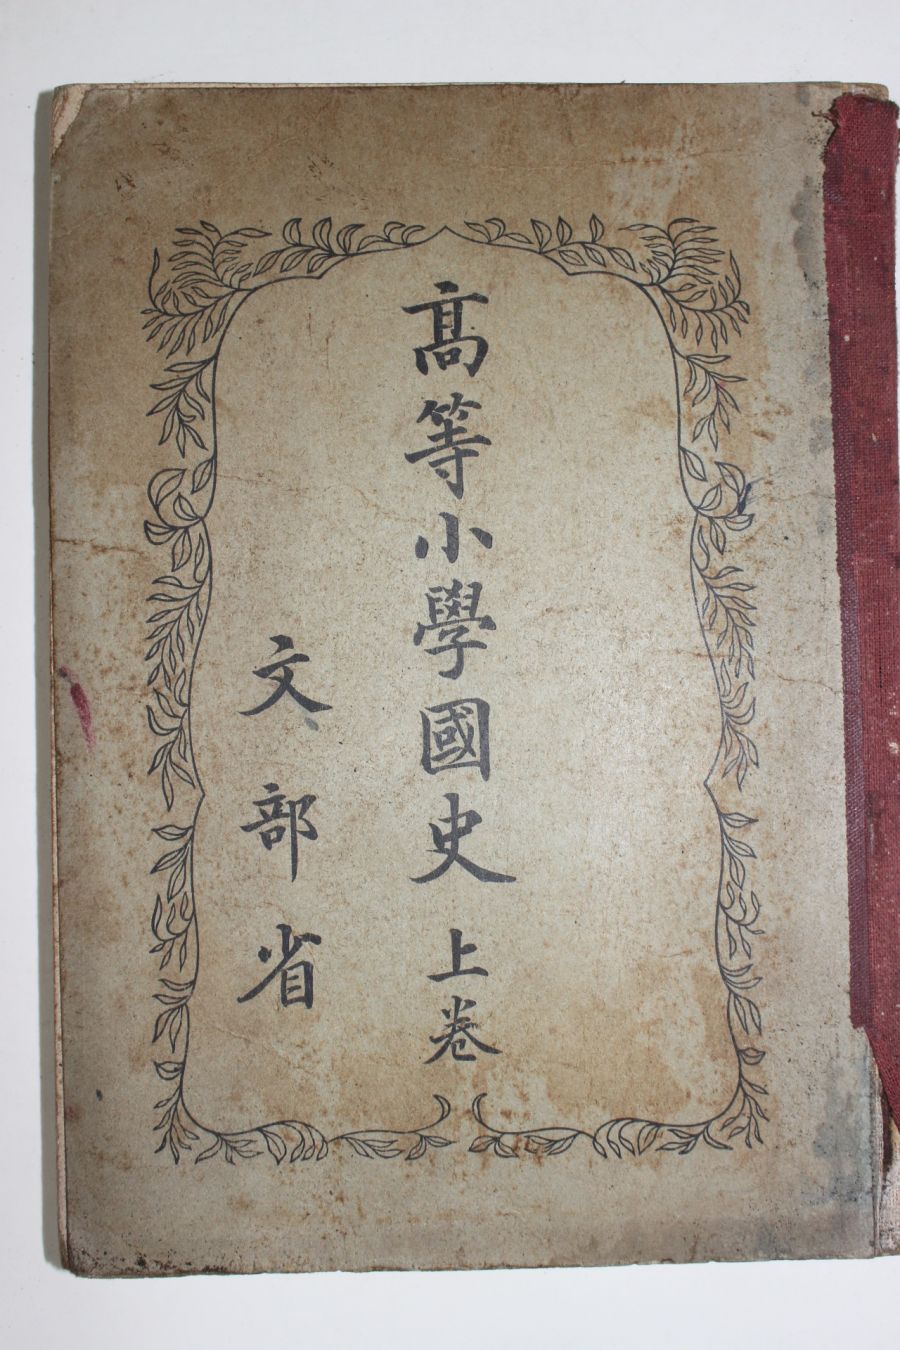 髙等小學國史上卷
文部省